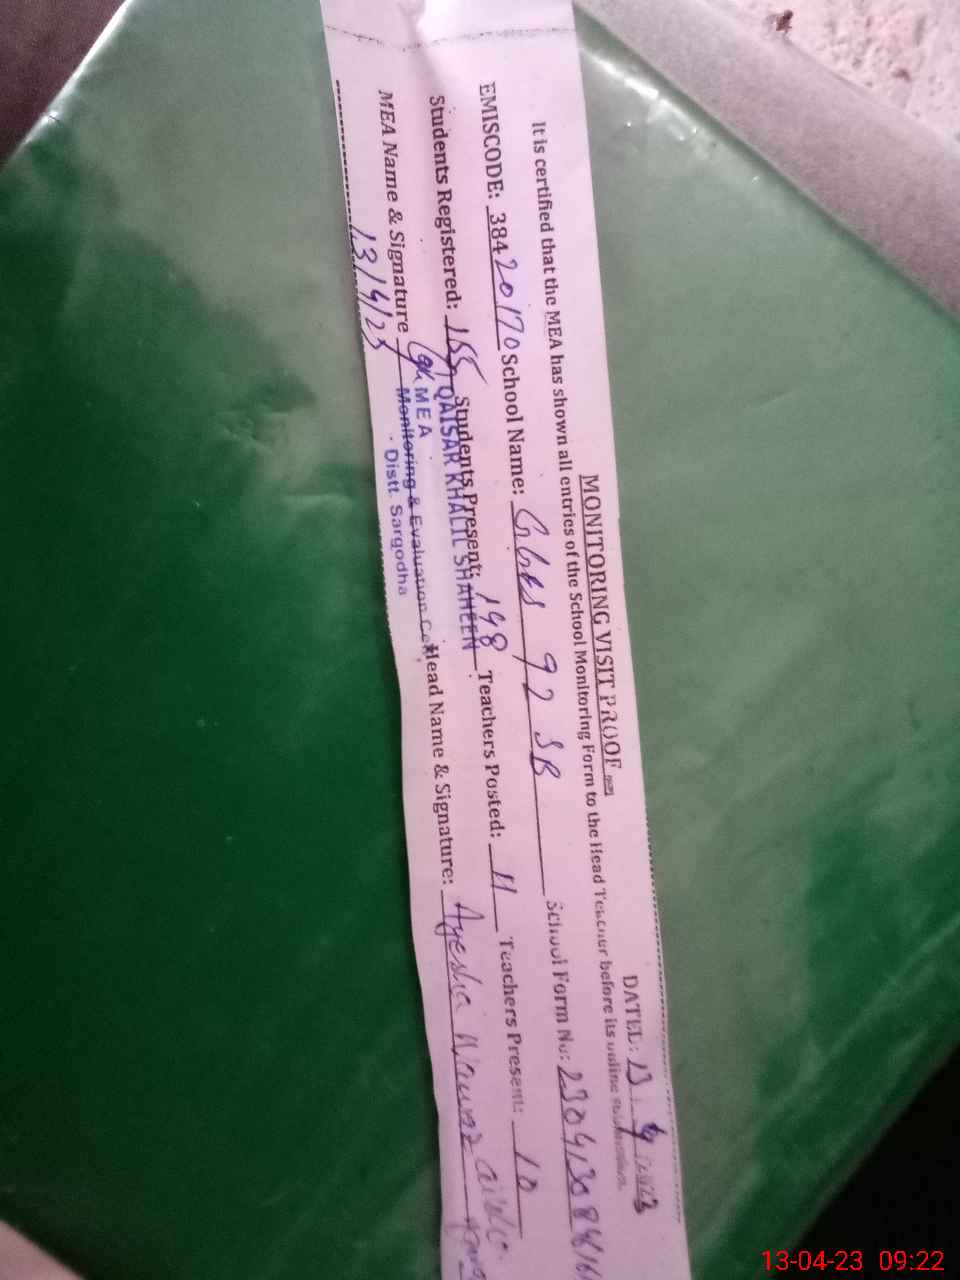 MONITORING VISIT PROOF
DATE: 13 . 4 . 2023
It is certified that the MEA has shown all entries of the School Monitoring Form to the Head Teacher before its online submission.
EMISCODE: 38420170 School Name: 92 SB School Form No:
Students Registered: Students Present: 198 Teachers Posted: 11 Teachers Present: 10
MEA Name & Signature Head Name & Signature: Ayesha Nawaz
QAISAR KHALIL SHAHEEN
MEA
Monitoring & Evaluation Cell,
Distt. Sargodha
13/4/23
13-04-23 09:22